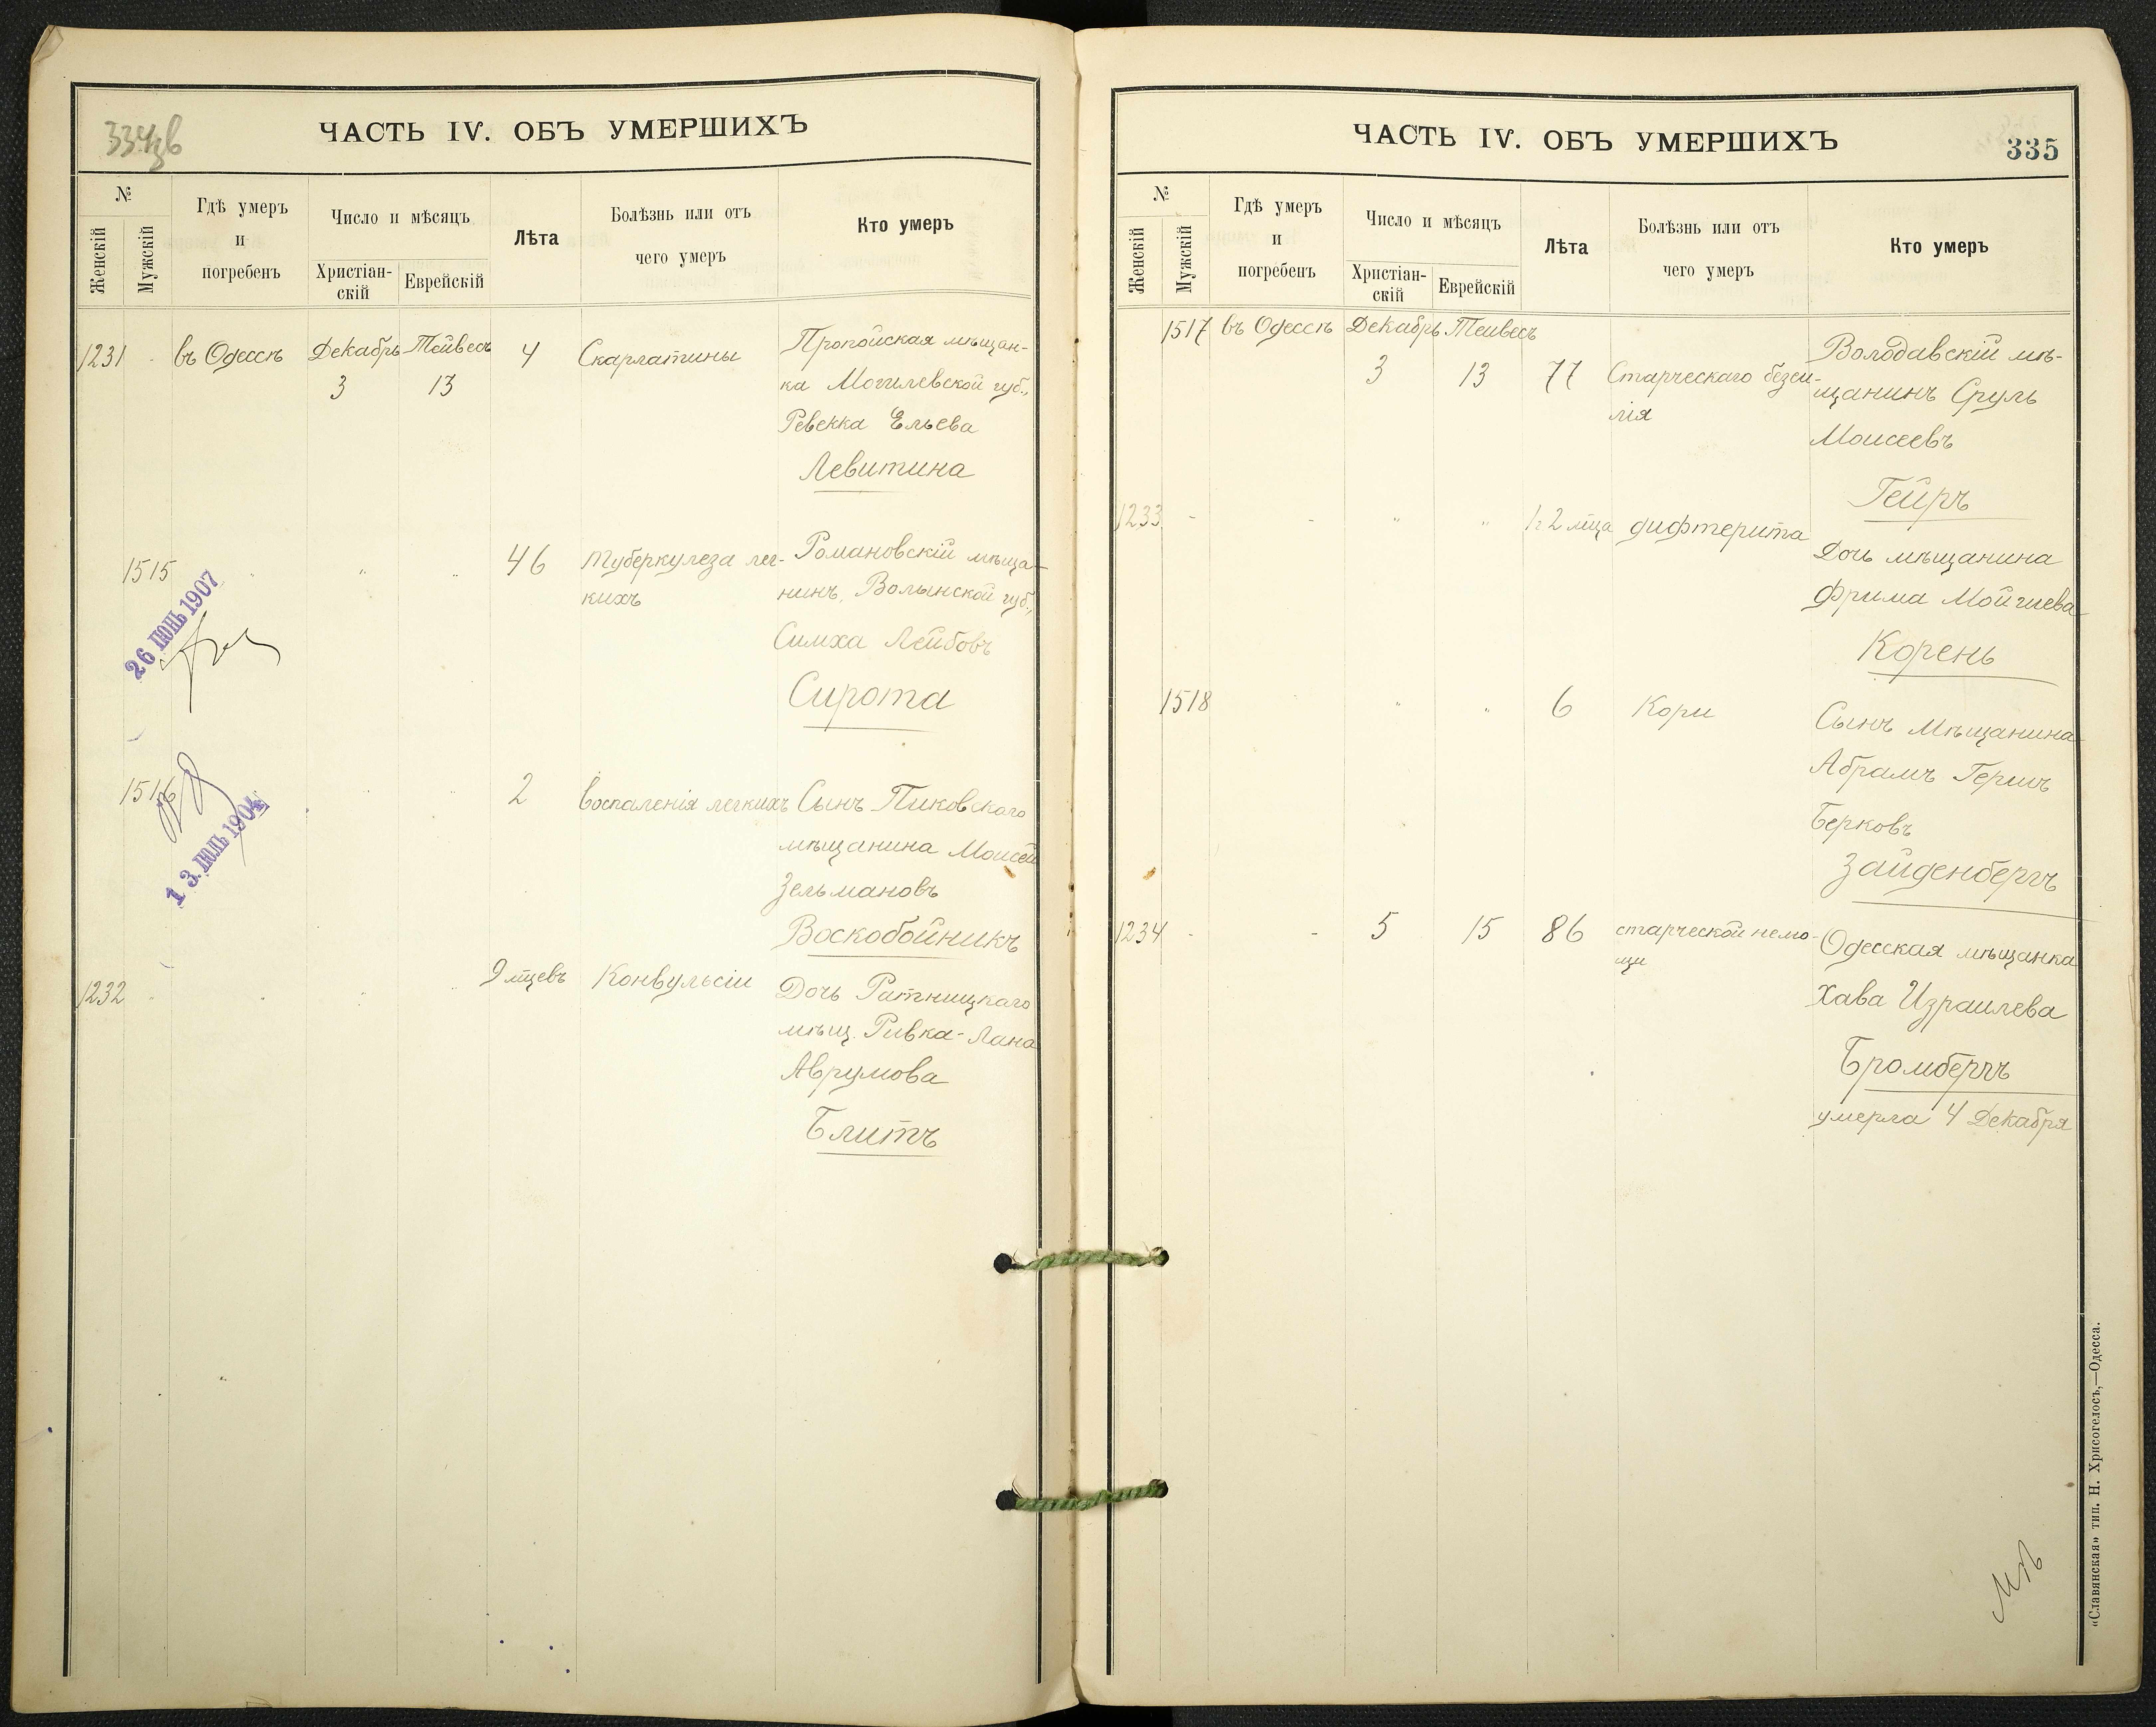 334об
ЧАСТЬ IV. ОБЪ УМЕРШИХЪ
№
Женскій
Мужскій
Гдѣ умеръ
и
погребенъ
Число и мѣсяцъ
Христіан-
скій
Еврейскій
Лѣта
Болѣзнь или отъ
чего умеръ
Кто умеръ
1231 въ Одессѣ Декабрь Тейвесъ 4 Скарлатины Пропойская мѣщан-
3 13 ка Могилевской губ.,
Ревекка Ельева
Левитина
1515 46 туберкулеза лег- Романовскій мѣща-
кихъ нинъ, Волынской губ.,
26 ІЮНЬ 1907
Симха Лейбовъ
Сирота
1516 2 воспаленія легкихъ Сынъ Пиковскаго
мѣщанина Моисей
13.ІЮЛЬ 1904
Зельмановъ
Воскобойникъ
1232 9 мцевъ Конвульсіи Дочь Ратницкаго
мѣщ. Ривка-Лана
Аврумова
Блитъ
ЧАСТЬ IV. ОБЪ УМЕРШИХЪ
335
№
Женскій
Мужскій
Гдѣ умеръ
и
погребенъ
Число и мѣсяцъ
Христіан-
скій
Еврейскій
Лѣта
Болѣзнь или отъ
чего умеръ
Кто умеръ
1517 въ Одессѣ Декабрь Тейвесъ Володавскій мѣ-
3 13 77 Старческаго безси- щанинъ Сруль
лія Моисеевъ
Гейръ
1233 " " 1г 2 мца дифтерита Дочь мѣщанина
Фрима Мойшева
Корень
1518 " " 6 Кори Сынъ Мѣщанина
Абрамъ Гершъ
Берковъ
Зайденбергъ
1234 5 15 86 старческой немо- Одесская мѣщанка
щи
Хава Израилева
Бромбергъ
умерла 4 Декабря
«Славянская» тип. Н. Хрисогелосъ,—Одесса.